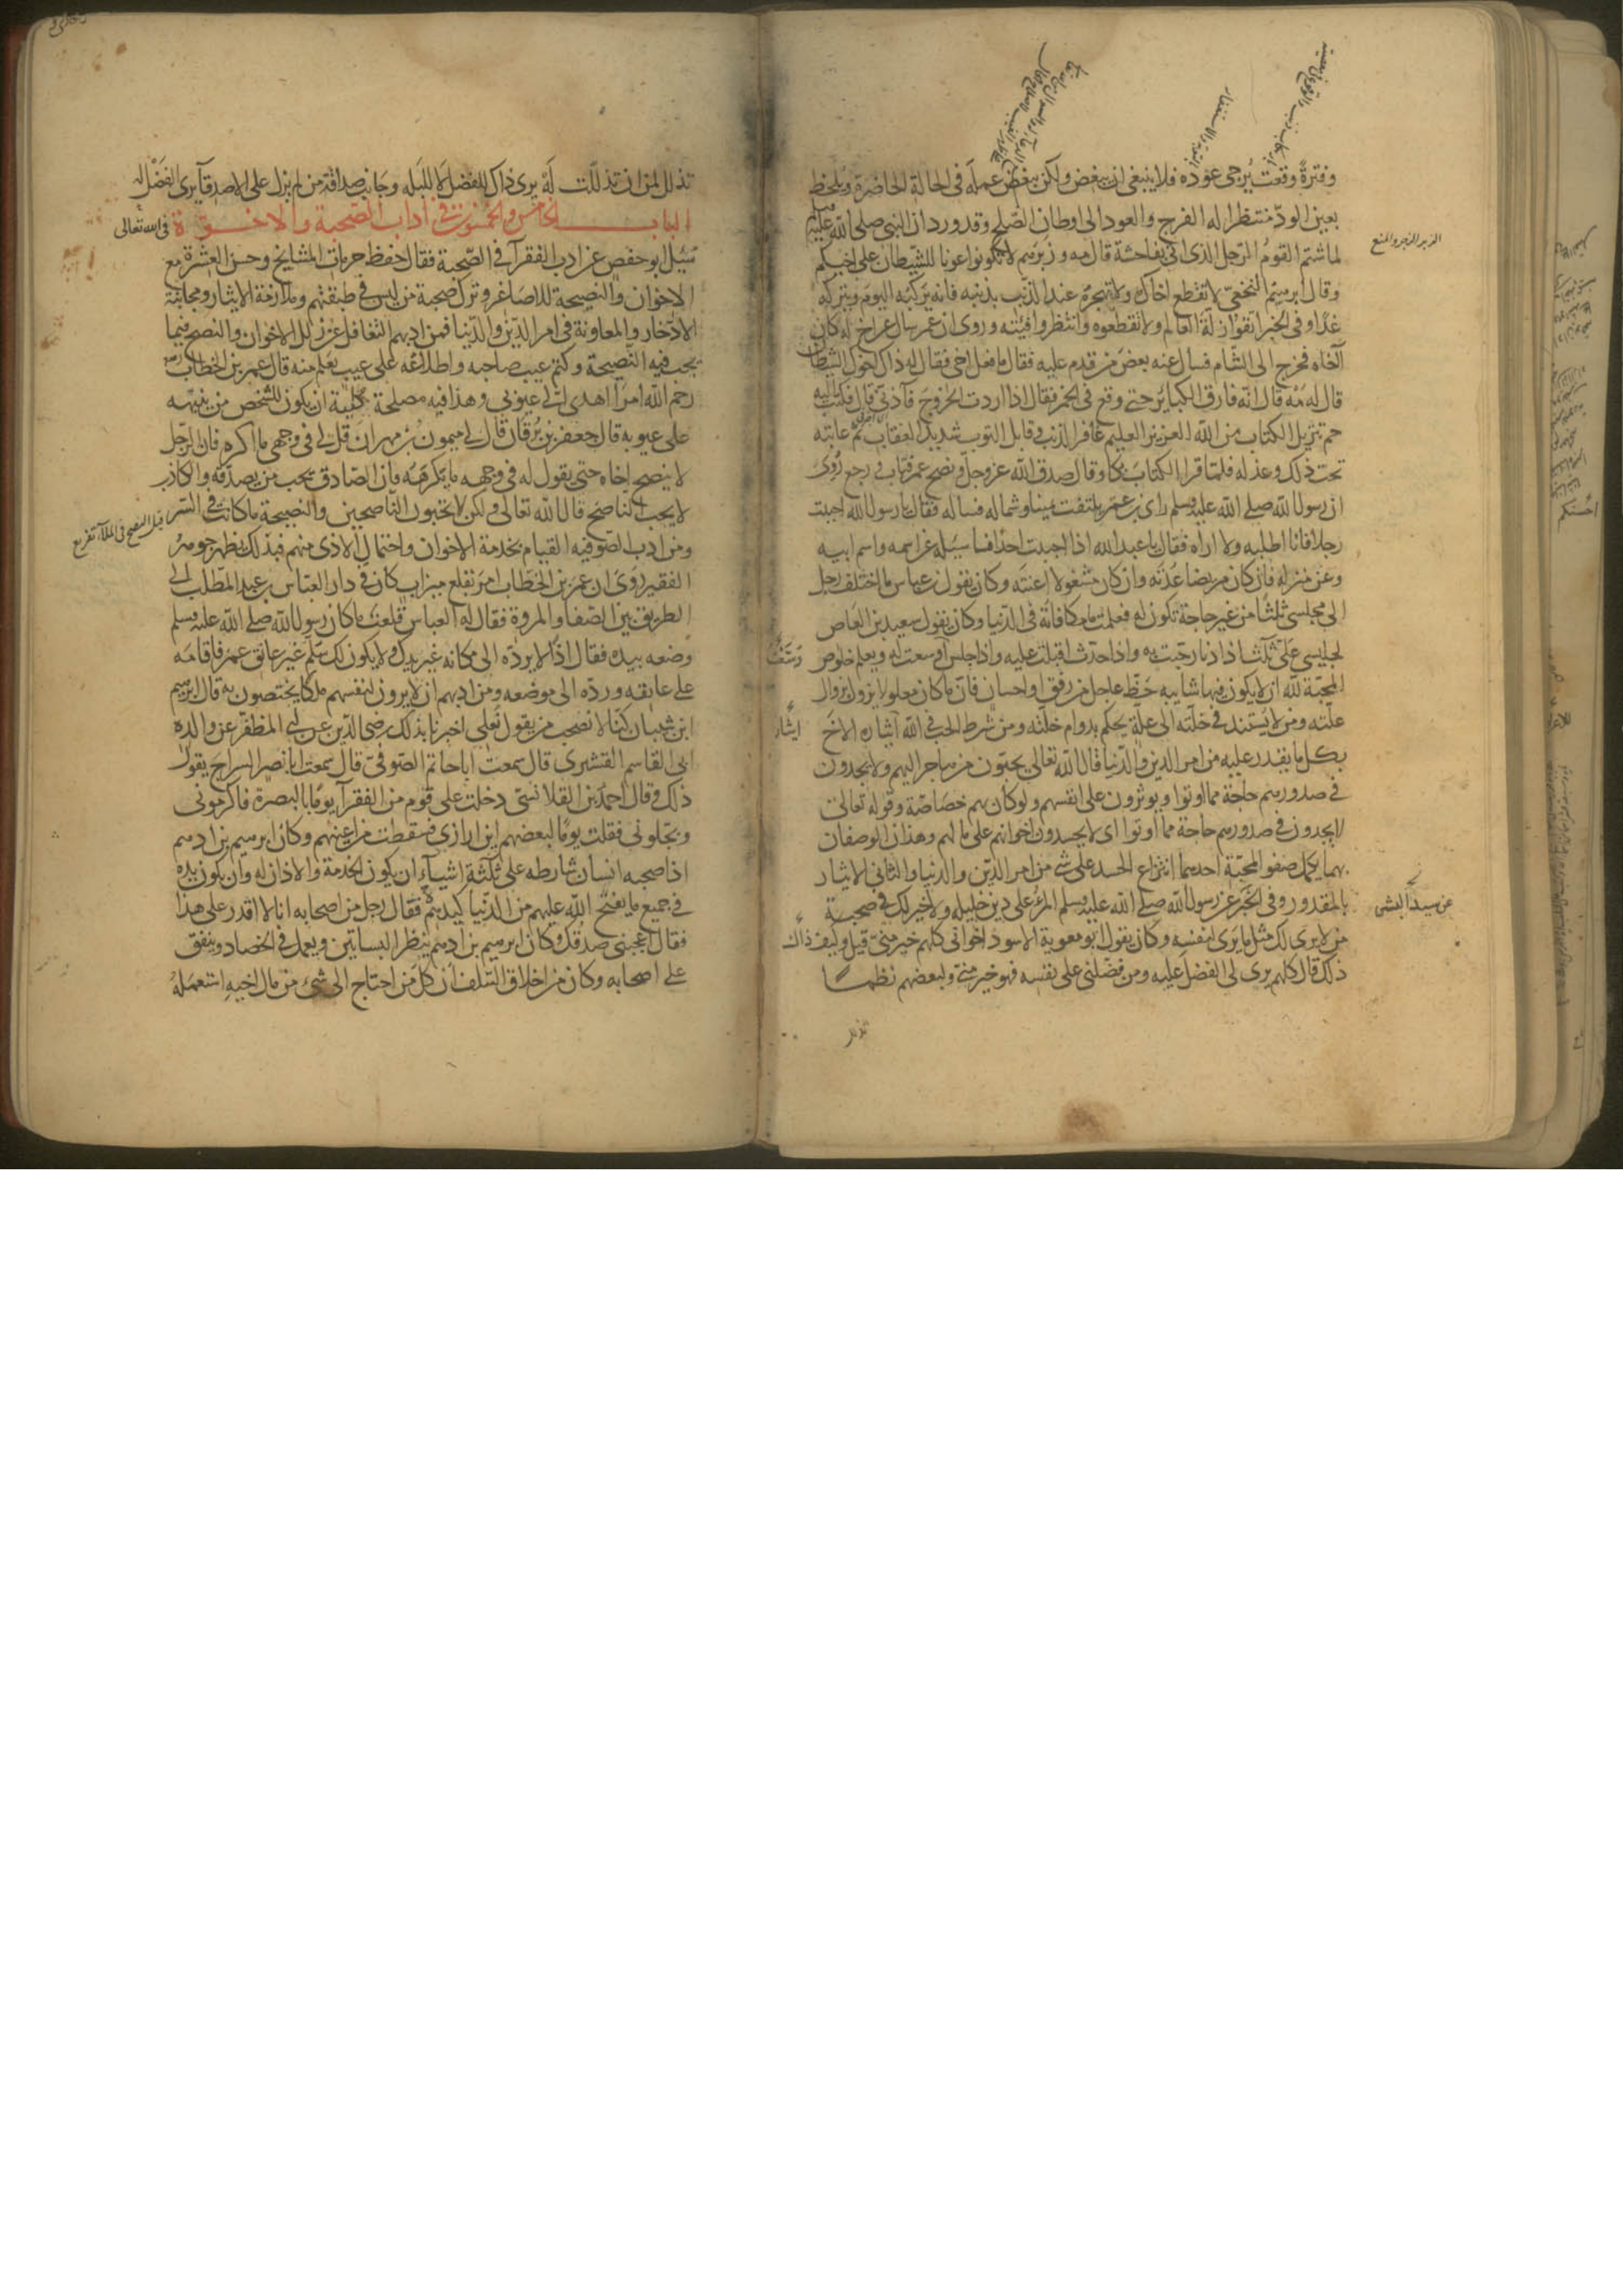 وفترةً وقعت يُرجى عوده فلا ينبغى ان يبغض ولكن يبغض عمله فى الحالة الحاضرة ويُلحظ
بعين الودّ منتظرا له الفرج والعود الى اوطان الصّلح وقد ورد ان النبى صلى الله عليه
لما شتم القومُ الرّجل الذى اتى بفاحشة قال مه وزبرهم لا تكونوا عونا للشّيطان على اخيكم
الزبر الزجر والمنع
وقال ابرهيم النخعىّ لا تقطع اخاك ولا تهجره عند الذنب بذنبه فانه يركبه اليوم ويتركه
غدًا وفى الخبر اتقوا زلّة العالم ولا تقطعوه وانتظروا فيئته وروى ان عمر سال عن اخ له كان
آخاه فخرج الى الشام فسال عنه بعض من قدم عليه فقال ما فعل اخى فقال له ذاك اخو الشيطان
قال له مَهْ قال انّه قارف الكبائر حتى وقع فى الخمر فقال اذا اردت الخروج فآذنّى قال فكتب اليه
حم تنزيل الكتاب من الله العزيز العليم غافر الذنب وقابل التوب شديد العقاب ثمّ عاتبه
تحت ذلك وعذله فلمّا قرا الكتاب بكا وقال صدق الله عزّ وجلّ ونصح عمر فتاب ورجع رُوىَ
ان رسول الله صلى الله عليه وسلم راى بن عمر يلتفت يمينا وشماله فساله فقال يا رسول الله احببت
رجلا فانا اطلبه ولا اراه فقال يا عبد الله اذا احببت احدًا فاسئله عن اسمه واسم ابيه
وعن منزله فان كان مريضا عُدته وان كان مشغولا اعنته وكان يقول بن عباس ما اختلف رجل
الى مجلسى ثلثًا من غير حاجة تكون له فعلمت ما مكافاته فى الدّنيا وكان يقول سعيد بن العاص
لجليسى علىّ ثلث اذا دنا رحّبت به واذا حدّث اقبلت عليه واذا جلس اوسعت له ويعلم خلوص
المحبّة لله ان لا يكون فيها شايبه حظّ عاجل من رفق واحسان فانّ ما كان معلولا يزول بزوال
علّته ومن لا يَستند فى خلّته الى علّة يحكم بدوام خلّته ومن شرط الحب فى الله ايثار الاخ
ايثار
بكل ما يقدر عليه من امر الدين والدّنيا قال الله تعالى يحبّون من هاجر اليهم ولا يجدون
فى صدورهم حاجة مما اوتوا ويوثرون على انفسهم ولو كان بهم خصاصة وقوله تعالى
لا يجدون فى صدورهم حاجة مما اوتوا اى لا يحسدون اخوانهم على ما لهم وهذان الوصفان
بهما يكمل صفو المحبّة احدهما انتزاع الحسد على شى من امر الدّين والدنيا والثانى الايثار
بالمقدور وفى الخبر عن رسول الله صلى الله عليه وسلم المرءُ على دين خليله ولا خير لك فى صحبة
من لا يرى لك مثل ما يرى لنفسه وكان يقول ابو معوية الاسود اخوانى كلهم خير منّى قيل وكيف ذاك
ذلك قال كلهم يرى لى الفضل عليه ومن فضّلنى على نفسه فهو خير منّى ولبعضهم نظما
تذلل
تذلل لمن ان تذلّلت لَهُ يرى ذاك للفضل لا للبَله وجانب صداقة من لم يزل على الاصدقآ يرى الفضل له
الباب الخامس والخمسون فى آداب الصّحبة والاخوّة فى الله تعالى
سئل ابو حفص عن ادب الفقرآ فى الصّحبة فقال حفظ حرمات المشايخ وحسن العشرة مع
الاخوان والنصيحة للاصاغر وترك صحبة من ليس فى طبقتهم وملازمة الايثار ومجانبة
الادّخار والمعاونة فى امر الدّين والدّنيا فمن ادبهم التغافل عن زلل الاخوان والنصح فيما
يجب فيه النّصيحة وكتم عيب صاحبه واطلاعُه على عيب يعلم منه قال عمر بن الخطاب
رحم الله امرَا اهدى الىّ عيوبى وهذا فيه مصلحة كلية ان يكون للشخص من ينبّهه
على عيوبه قال جعفر بن بُرقان قال لى ميمون بن مهران قل لى فى وجهى ما اكره فان الرّجل
لا ينصح اخاه حتى يقول له فى وجهه ما يكرهه فان الصّادق يحب من يصدقه والكاذب
لا يحب النّاصح قال الله تعالى ولكن لا تحبون النّاصحين والنصيحة ما كانت فى السّر
قيل النصح فى الملأ تقريع
ومن ادب الصّوفيه القيام بخدمة الاخوان واحتمال الاذى منهم فبذلك تظهر جوهرُ
الفقير رَوىَ ان عمر بن الخطاب امر بقلع ميزاب كان فى دار العبّاس بن عبد المطّلب الى
الطريق بين الصّفا والمروة فقال له العباس قلعتَ ما كان رسول الله صلى الله عليه وسلم
وضعه بيده فقال اذًا لا يردّه الى مكانه غير يدك ولا يكون لك سُلّم غير عاتق عمر فاقامه
على عاتقه وردّه الى موضعه ومن ادبهم ان لا يرون لنفسهم ملكا يختصون به قال ابرهيم
ابن شيبان كنّا لا نصحب من يقول نعلى اخبرنا بذلك رضى الدّين عن ابى المظفّر عن والده
ابى القاسم القشيرى قال سمعت اباحاتم الصّوفىّ قال سمعت ابا نصر السراج يقول
ذلك وقال احمد بن القلانسى دخلت على قوم من الفقرآ يومًا بالبصرة فاكرمونى
وبجّلونى فقلت يومًا لبعضهم اين ازارى فسقطت من اعينهم وكان ابرهيم بن ادهم
اذا صحبه انسان شارطه على ثلثة اشيآءٍ ان يكون الخدمة والاذان له وان يكون يده
فى جميع ما يفتح الله عليهم من الدّنيا كيدهم فقال رجل من اصحابه انا لا اقدر على هذا
فقال اعجبنى صدقك وكان ابرهيم بن ادهم ينظر البساتين ويعمل فى الحصاد وينفق
على اصحابه وكان من اخلاق السّلف ان كل من احتاج الى شىء من مال اخيه استعمله